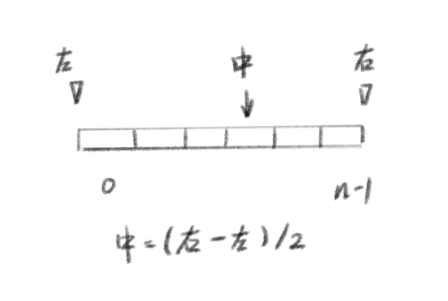 左 中 右
0 n-1
中=(右-左)/2